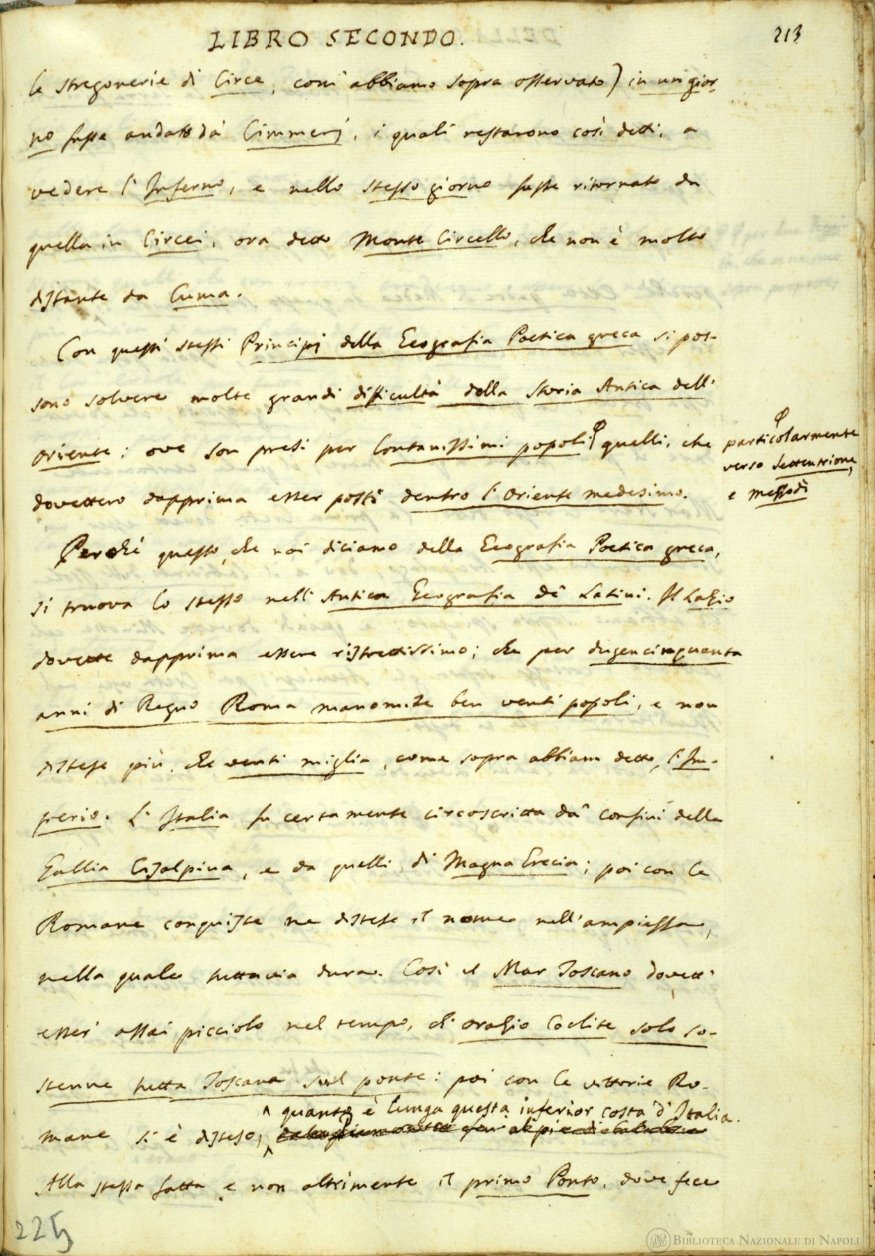 LIBRO SECONDO.
213
le stregonerie di Circe, com' abbiamo sopra osservato) in un gior-
no fusse andato da' Cimmerj, i quali restarono così detti, a
vedere l'Inferno, e nello stesso giorno fusse ritornato da
quella in Circei, ora detto Monte Circello, che non è molto
distante da Cuma.
Con questi stessi Principj della Geografia Poetica greca si pos-
sono solvere molte grandi difficultà della Storia Antica dell'
Oriente; ove son presi per lontanissimi popoli φ quelli, che
φ
particolarmente
verso Settentrione,
e mezzodì
dovettero dapprima esser posti dentro l'Oriente medesimo.
Perchè questo, che noi diciamo della Geografia Poetica greca,
si truova lo stesso nell'Antica Geografia de' Latini. Il Lazio
dovette dapprima essere ristrettissimo; che per dugencinquanta
anni di Regno Roma manomise ben venti popoli, e non
distese più, che venti miglia, come sopra abbiam detto, l'Im-
perio. L'Italia fu certamente circoscritta da' confini della
Gallia Cisalpina, e da quelli di Magna Grecia; poi con le
Romane conquiste ne distese il nome nell'ampiezza,
nella quale tuttavia dura. Così il Mar Toscano dovett'
esser assai picciolo nel tempo, ch'Orazio Coclite solo so-
stenne tutta Toscana sul ponte: poi con le vittorie Ro-
quanto è lunga questa inferior costa d'Italia.
mane si è disteso,
Alla stessa fatta, e non altrimente il primo Ponto, dove fece
225
BIBLIOTECA NAZIONALE DI NAPOLI